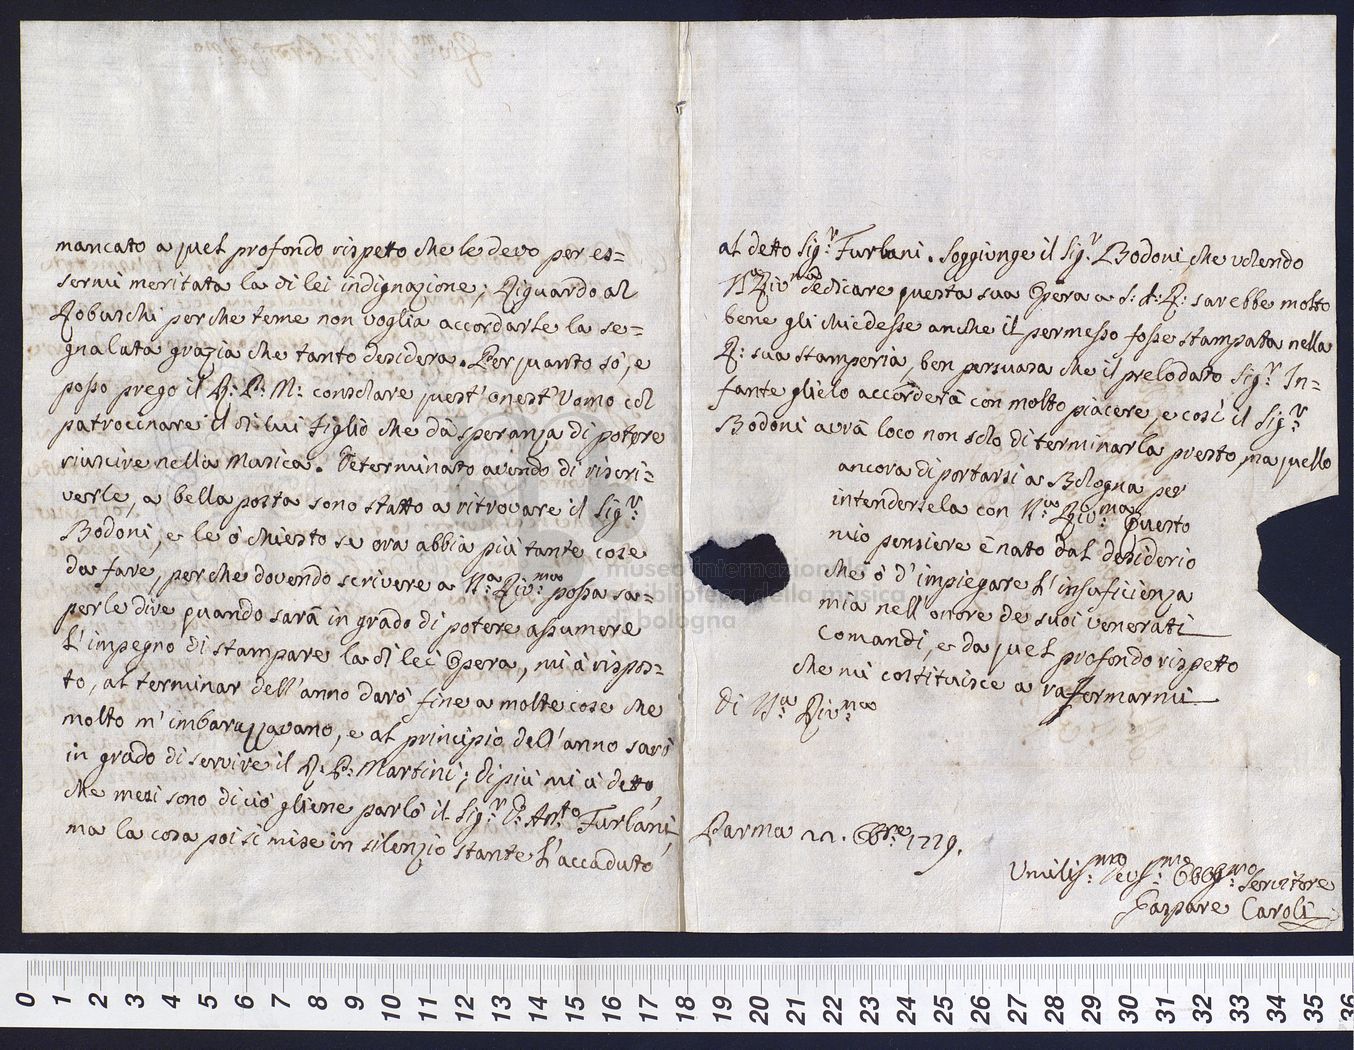 mancato a quel profondo rispetto che le devo per es=
sermi meritata la di lei indignazione; Riguardo al
Robuschi perche teme non voglia accordarle la se=
gnalata grazia che tanto desidera. Per quanto sò, e
posso prego il R: P: M: consolare quest'onest'Uomo col
patrocinare il di lui figlio che da speranza di potere
riuscire nella Musica. Determinato avendo di riscri=
verle, a bella posta sono statto a ritrovare il Sig.r
Bodoni, e le ò chiesto se ora abbia più tante cose
da fare, perche dovendo scrivere a V.a Riv.ma possa sa=
perle dire quando sarà in grado di potere assumere
l'impegno di stampare la di lei Opera, mi à rispos=
to, al terminar dell'anno darò fine a molte cose che
molto m'imbarazzavano, e al principio dell'anno sarò
in grado di servire il R. P. Martini; di più mi à detto,
che mesi sono di ciò gliene parlò il Sig.r D. Ant.o Furlani,
ma la cosa poi si mise in silenzio stante l'accaduto
al detto Sig.r Furlani. Soggiunge il Sig.r Bodoni che volendo
V.a Riv.ma dedicare questa sua Opera a S: A: R: sarebbe molto
bene gli chiedesse anche il permesso fosse stampata nella
R: sua stamperia, ben persuasa che il prelodato Sig.r In=
fante glielo accorderà con molto piacere, e così il Sig.r
Bodoni avrà loco non solo di terminarla presto, ma quello
ancora di portarsi a Bologna per
intendersela con V.a Riv.ma Questo
mio pensiere è nato dal desiderio
che ò d'impiegare l'insuficienza
mia nell'onore de suoi venerati
Comandi, e da quel profondo rispetto
che mi costituisce a rafermarmi
di V.a Riv.ma
Parma 22. Bre 1779.
Umiliss.mo Dev.mo Obblg.mo Servitore
Gaspare Caroli
museo internazionale
e biblioteca della musica
di bologna
0 1 2 3 4 5 6 7 8 9 10 11 12 13 14 15 16 17 18 19 20 21 22 23 24 25 26 27 28 29 30 31 32 33 34 35 36